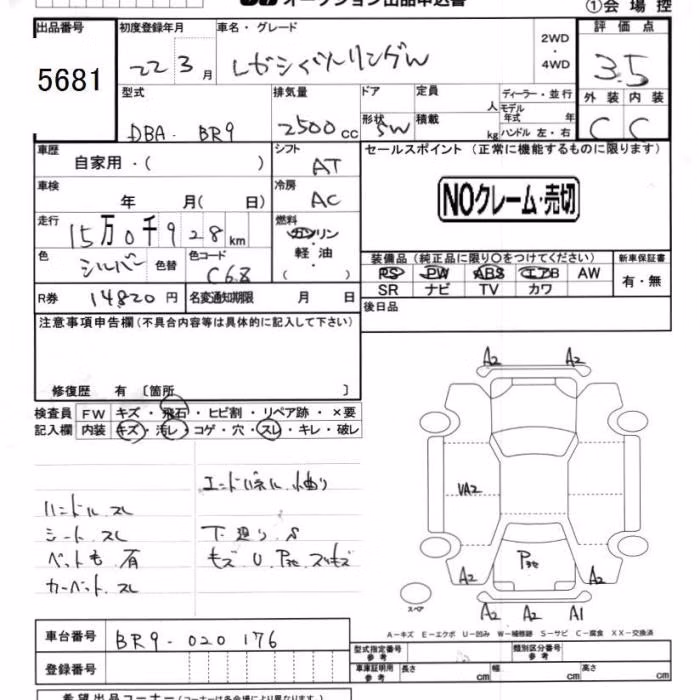 オークション出品申込書
①会場控
出品番号
5681
初度登録年月
22 3月
車名・グレード
レガシィツーリングW
2WD
・
4WD
評価点
3.5
外装 内装
C C
型式
DBA- BR9
排気量
2500cc
ドア
形状
SW
定員 人
積載 kg
ディーラー・並行
モデル年式 年
ハンドル 左・右
車歴
自家用・( )
シフト
AT
セールスポイント (正常に機能するものに限ります)
NOクレーム・売切
車検
年 月( 日)
冷房
AC
走行
15万0千928km
燃料
ガソリン
・
軽油
( )
色
シルバー
色替
色コード
C6Z
装備品 (純正品に限り○をつけてください)
PS PW ABS エアB AW
SR ナビ TV カワ
新車保証書
有・無
R券 14820円
名変通知期限 月 日
後日品
注意事項申告欄 (不具合内容等は具体的に記入して下さい)
修復歴 有 〔箇所 〕
検査員
記入欄
FW キズ・飛石・ヒビ割・リペア跡・×要
内装 キズ・汚レ・コゲ・穴・スレ・キレ・破レ
エンドパネル 小曲り
ハンドル スレ
シート スレ
下廻り S
ペット毛 有
カーペット スレ
A2 A2
VA2
A2 A2
A2 A2 A1
スペア
A-キズ E-エクボ U-凹み W-補修跡 S-サビ C-腐食 XX-交換済
車台番号
BR9-020176
登録番号
型式指定番号
参考
類別区分番号
参考
車庫証明用
参考
長さ cm
幅 cm
高さ cm
希望出品コーナー